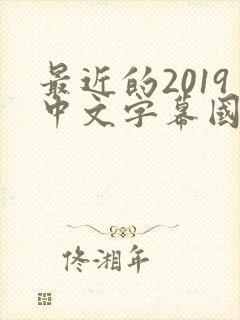 最近的2019
中文字幕國
佟湘年